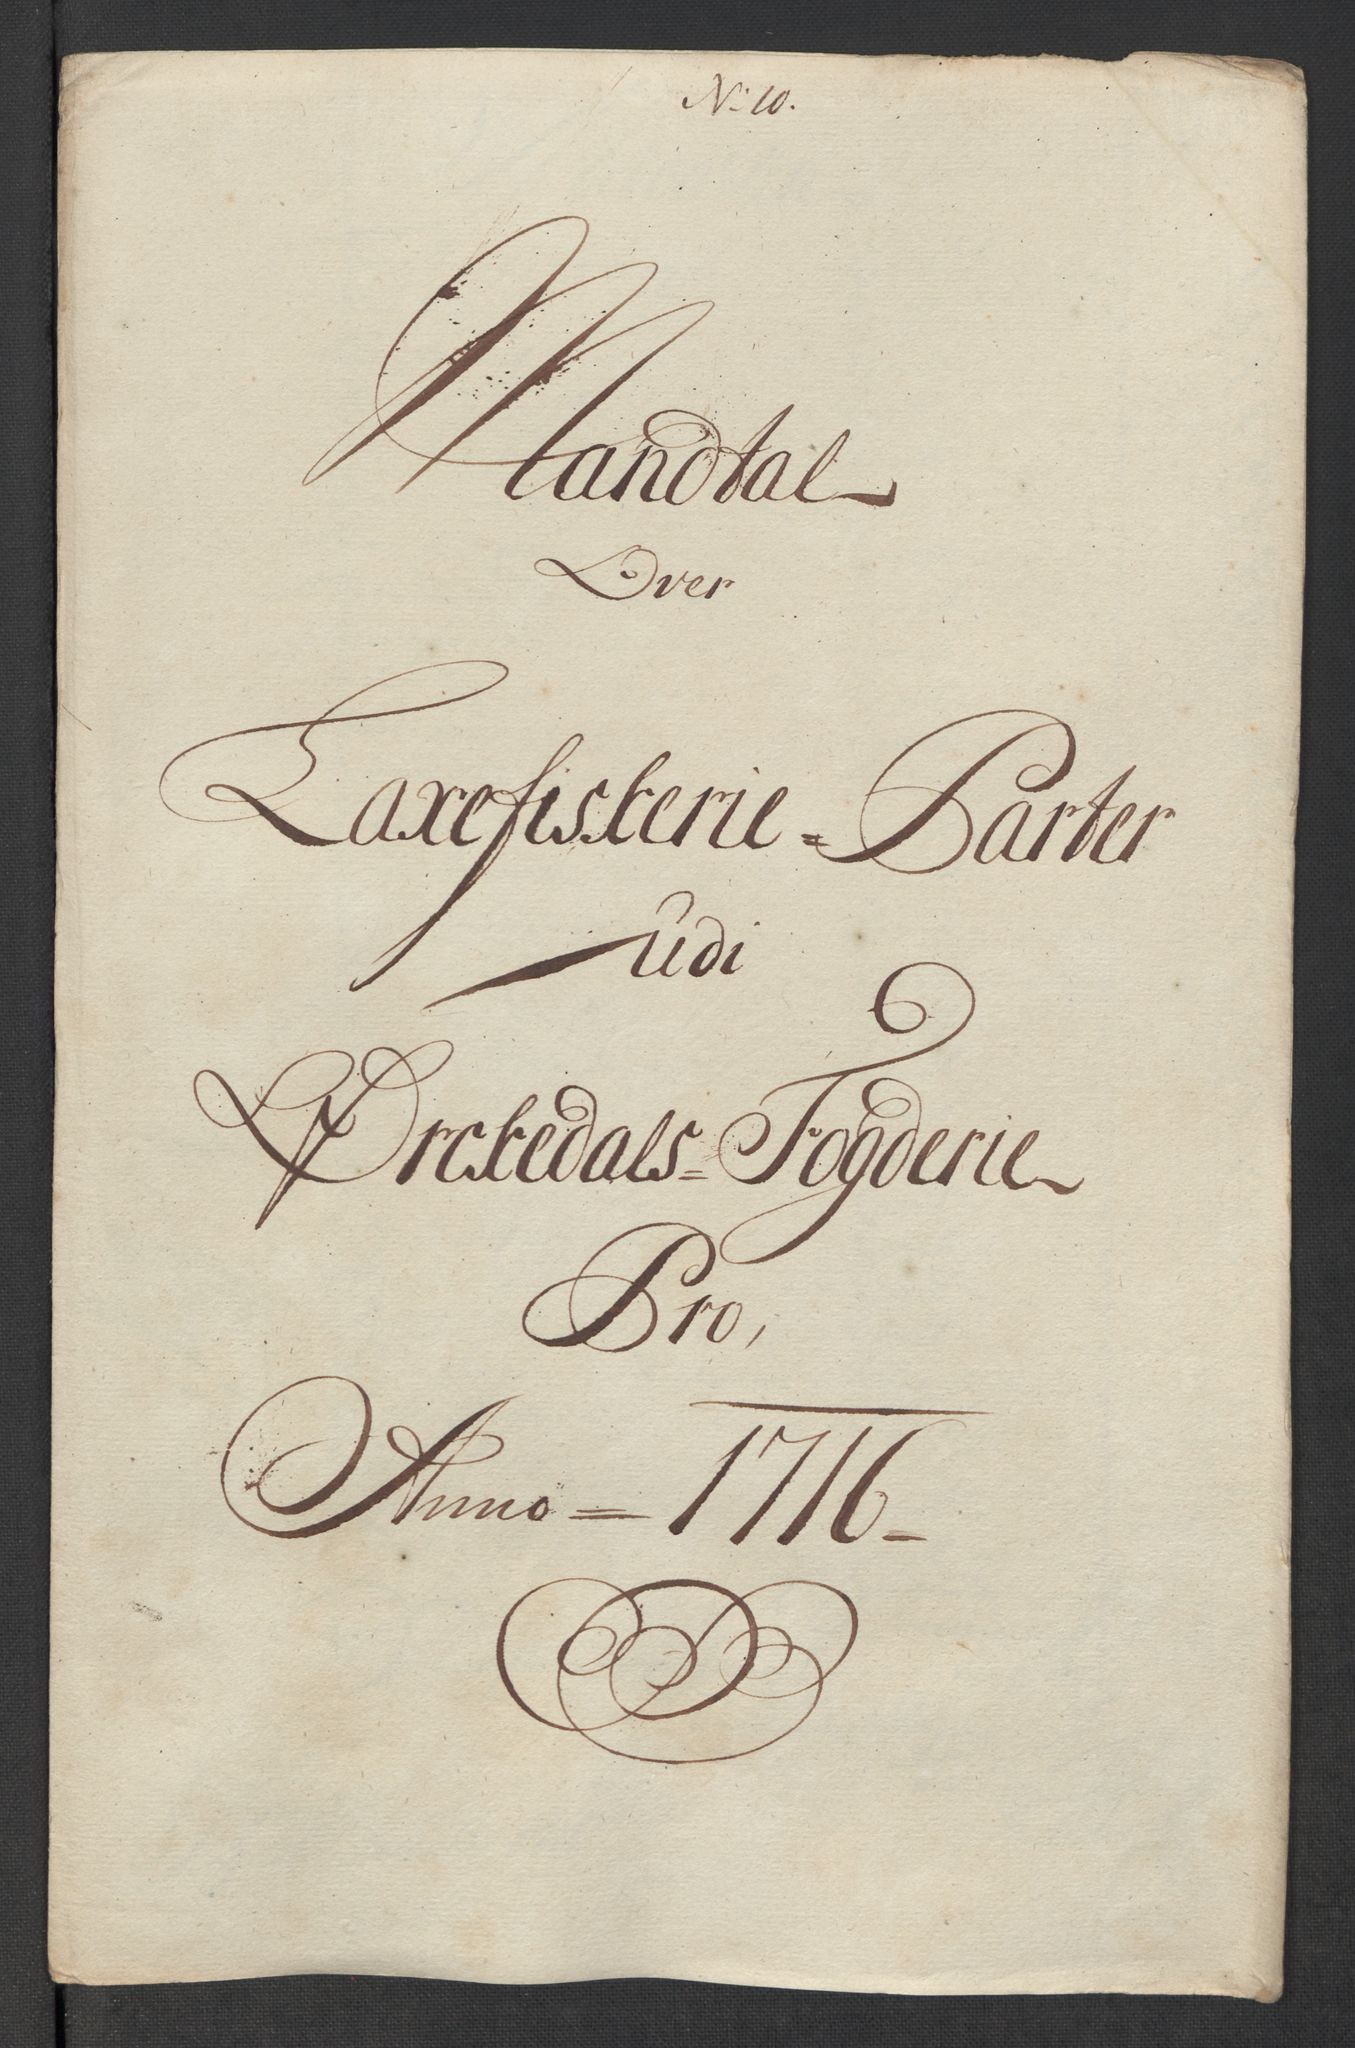 No: 10.
Mandtal
Over
Laxefiskerie = Parter
Udi
Ørckedals = Fogderie
Pro,
Anno = 1716